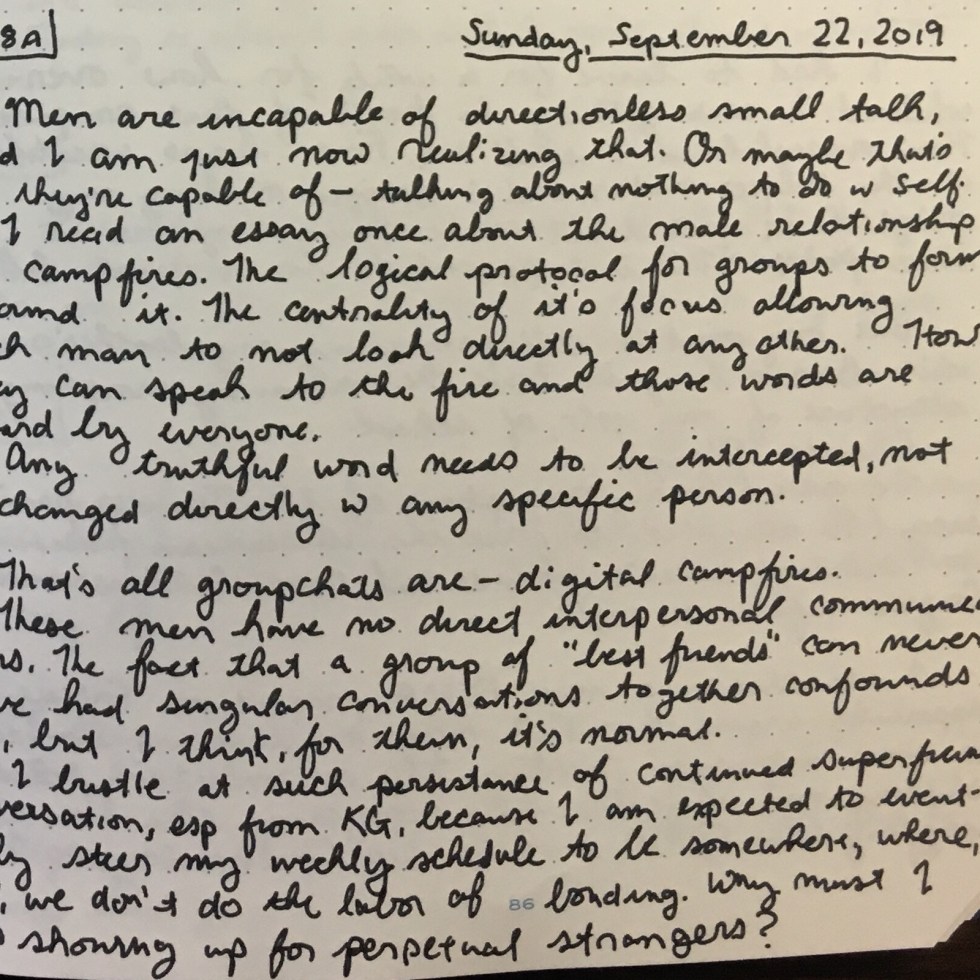 8A] Sunday, September 22, 2019
Men are incapable of directionless small talk,
d I am just now realizing that. Or maybe that's
they're capable of – talking about nothing to do w self.
I read an essay once about the male relationship
campfires. The logical protocol for groups to form
ound it. The centrality of it's focus allowing
ch man to not look directly at any other. How
ey can speak to the fire and those words are
ard by everyone.
Any truthful word needs to be intercepted, not
changed directly w any specific person.
That's all groupchats are – digital campfires.
These men have no direct interpersonal communic
rs. The fact that a group of "best friends" can never
ve had singular conversations together confounds
, but I think, for them, it's normal.
I bristle at such persistance of continued superficia
versation, esp from KG, because I am expected to event-
ly steer my weekly schedule to be somewhere, where,
, we don't do the labor of bonding. Why must I
showing up for perpetual strangers?
86